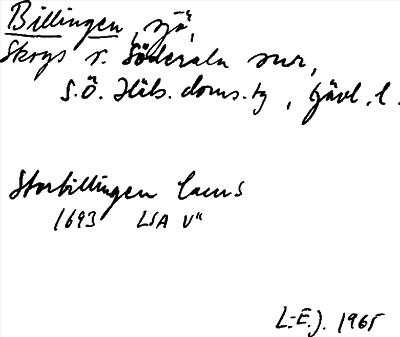 Billingen, sjö,
Skogs o. Söderala snr,
S.Ö. Häls. doms.tg, Gävl. l.
Storbillingen lacus
1693 LSA V"
L-E.J. 1965